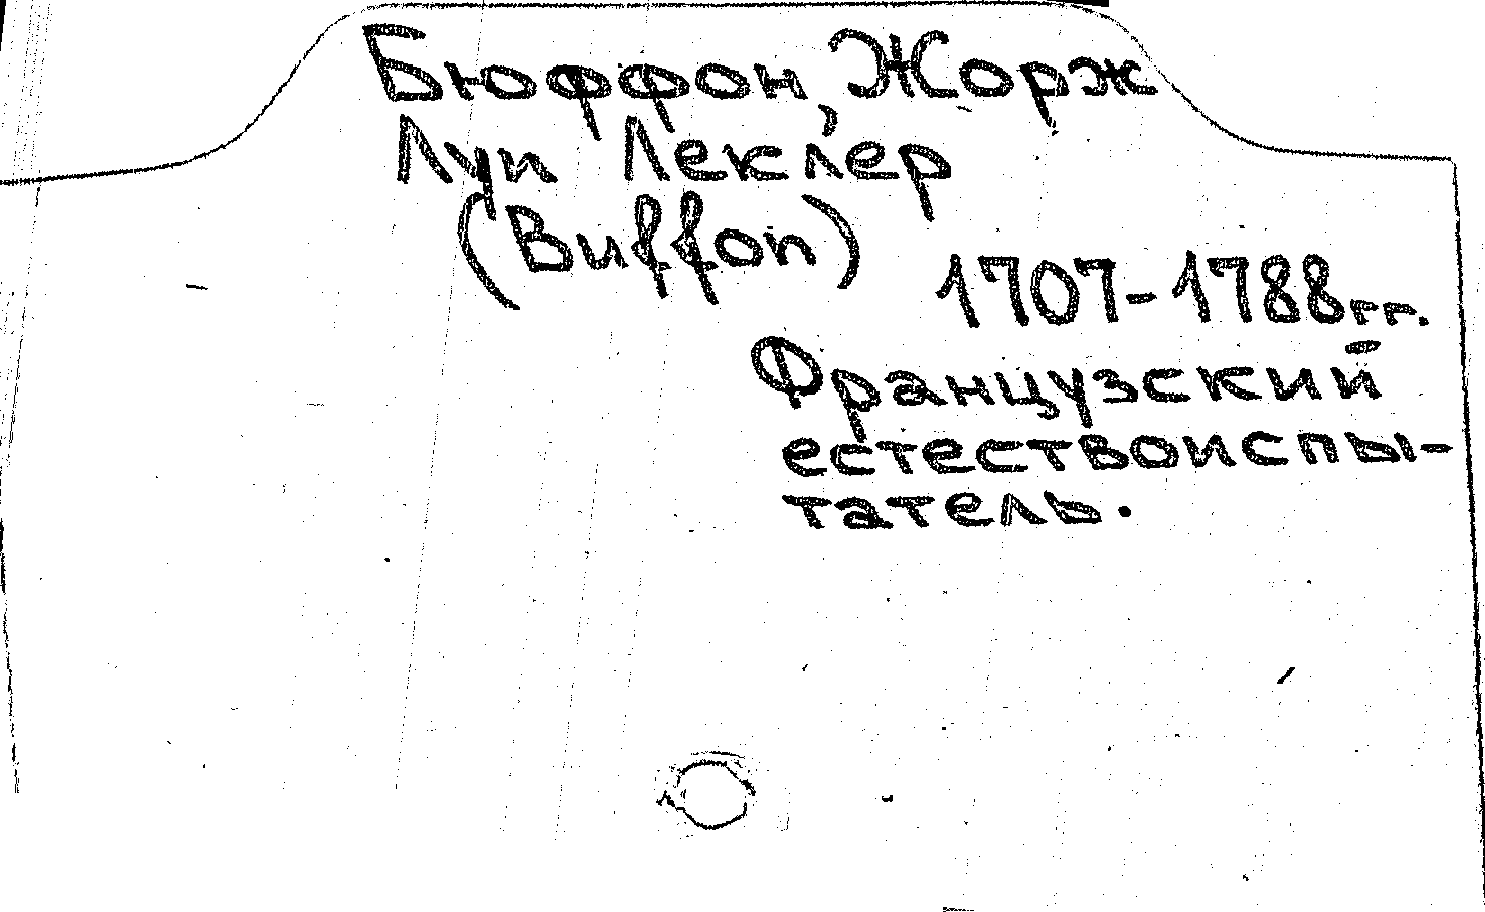 Бюффон, Жорж
Луи Леклер
(Buffon)
1707-1788гг.
Французский
естествоиспы-
татель.